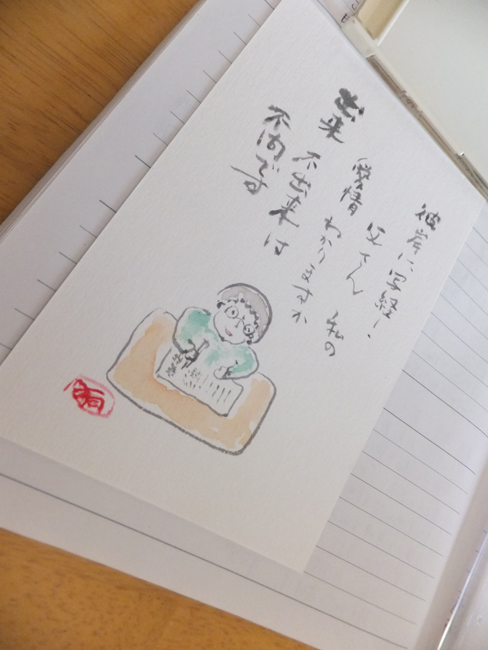 彼岸に写経し、
父さん 私の
愛情 わかりますか
出来 不出来は
不問です